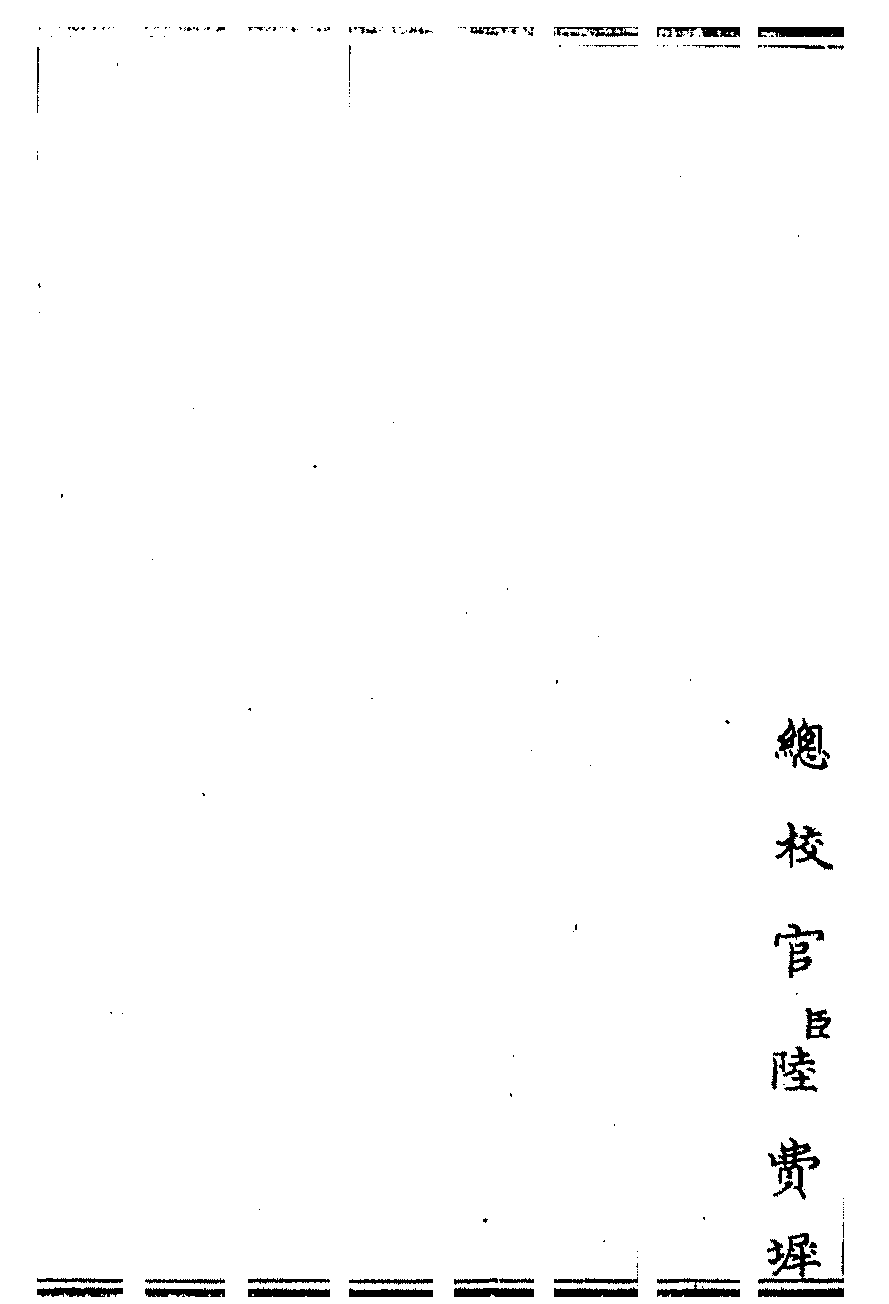 總校官臣陸費墀